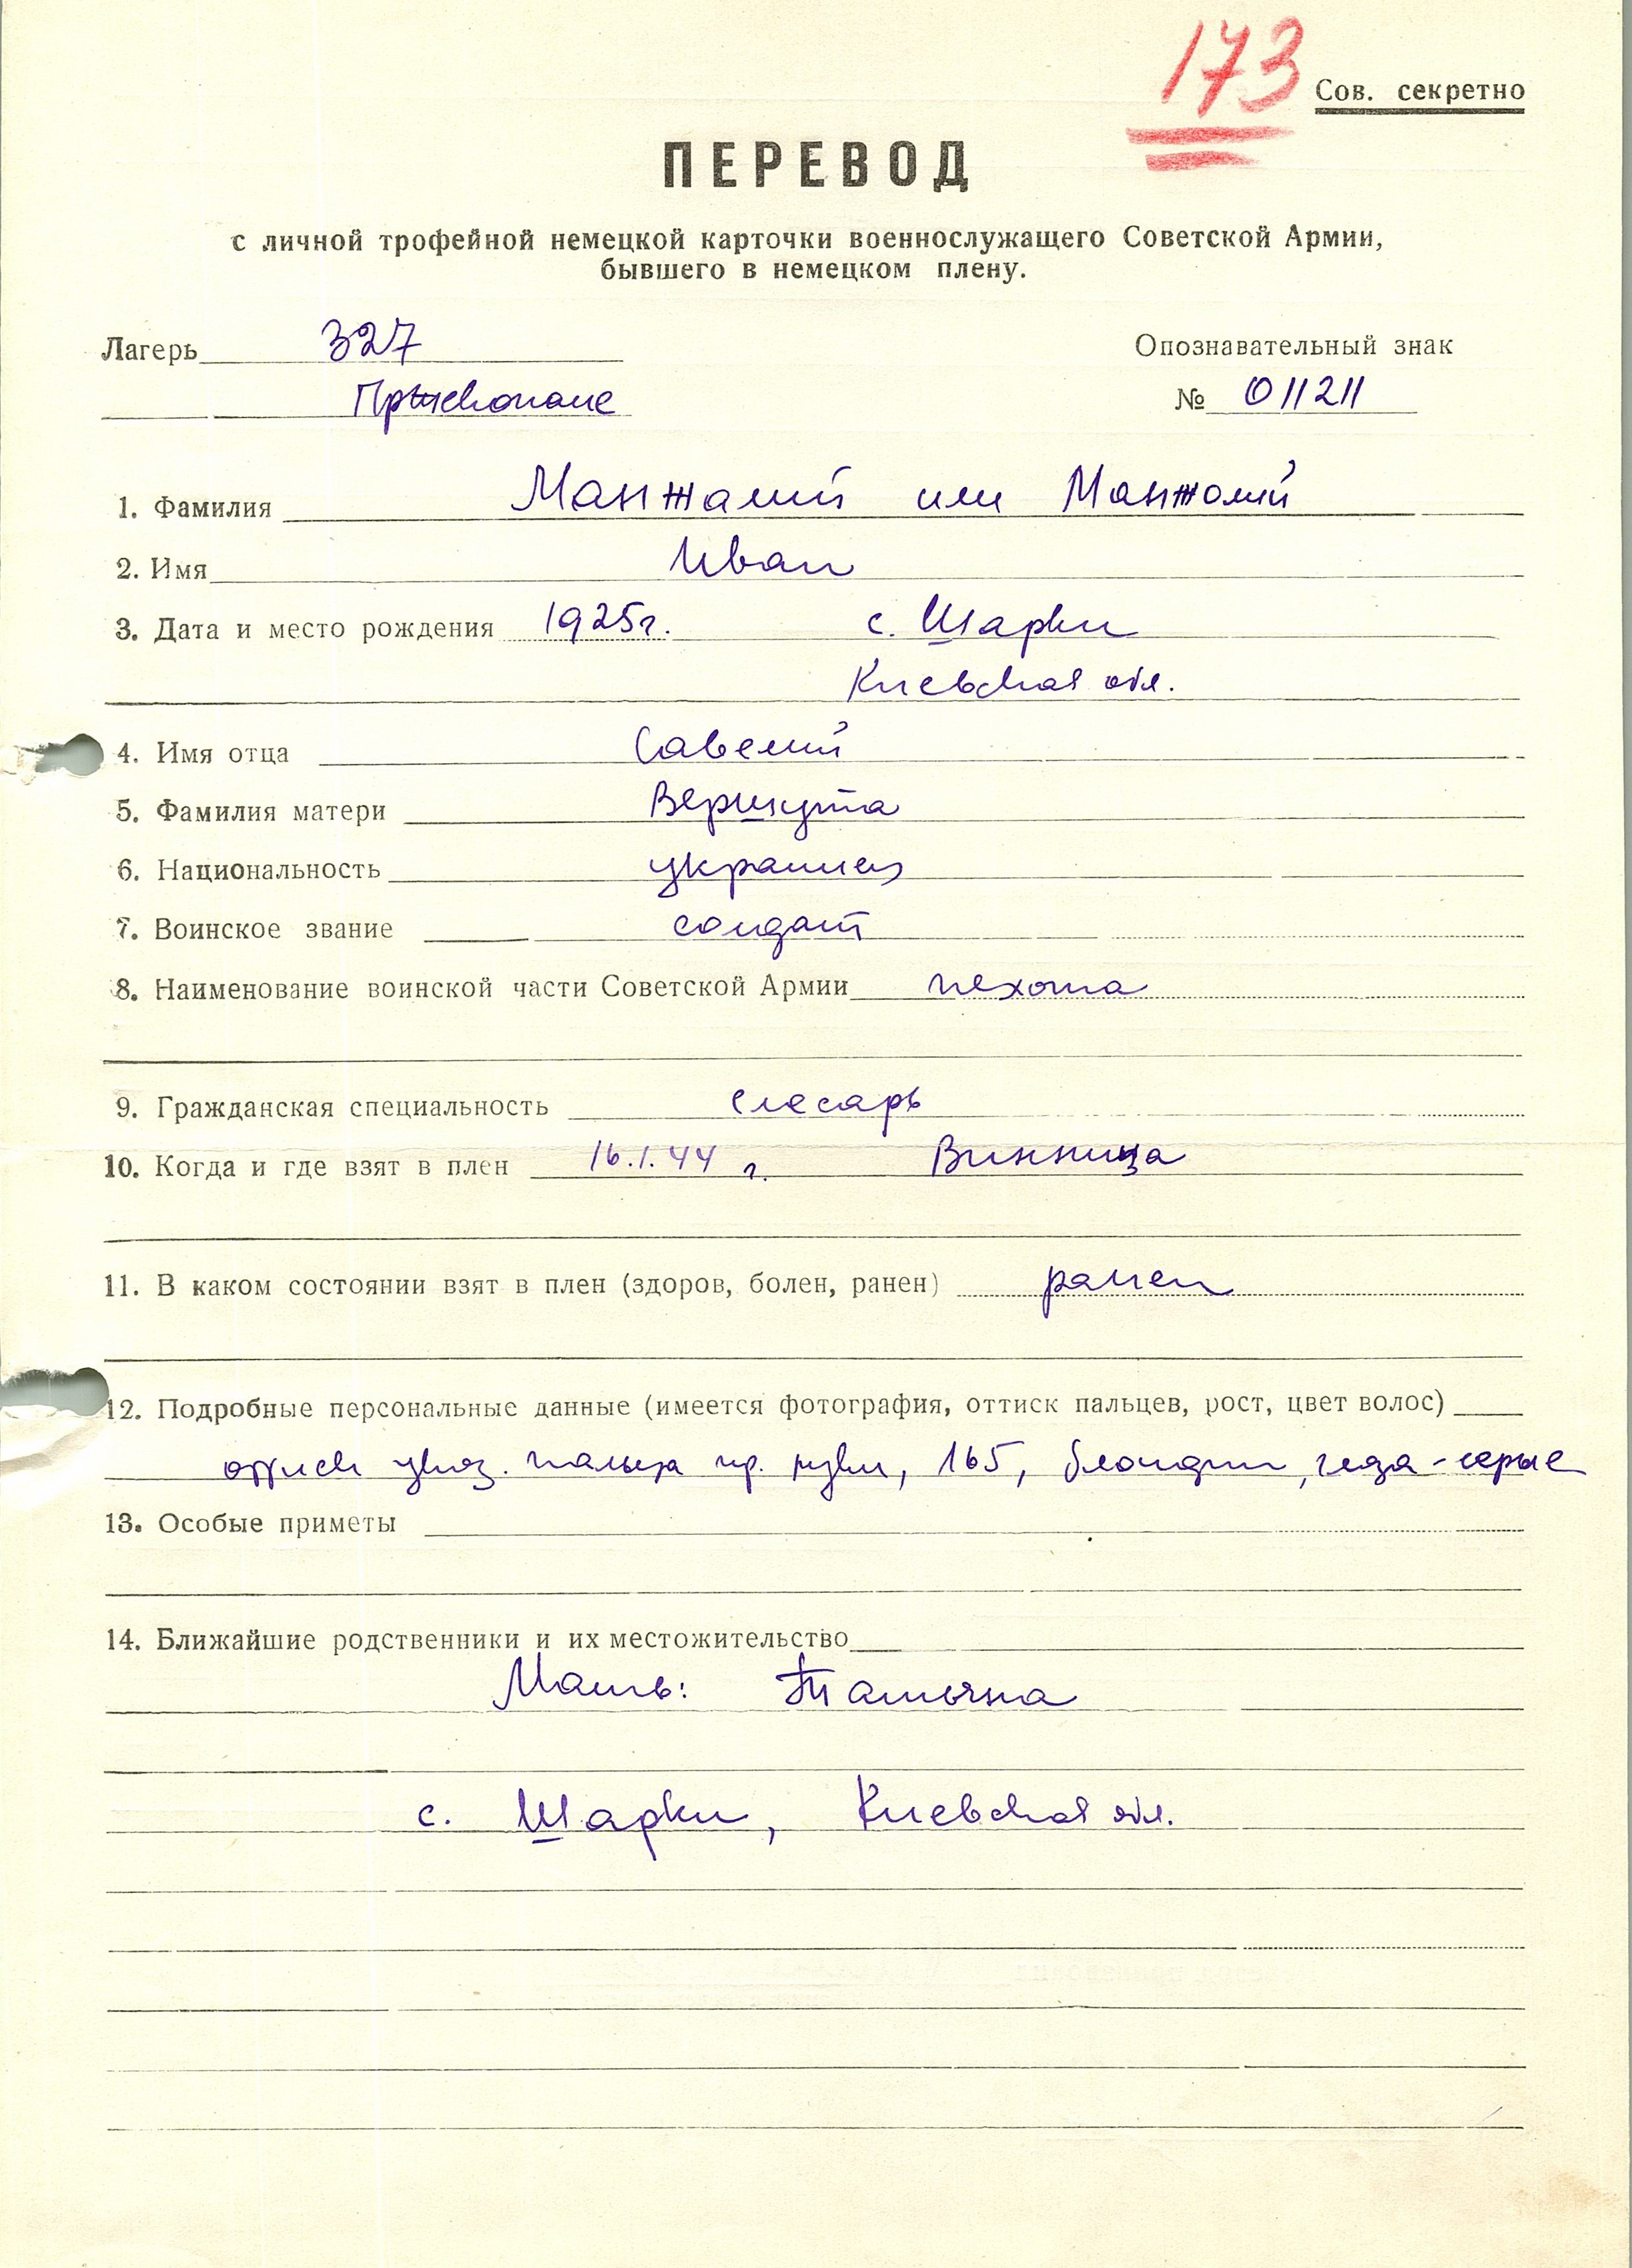 173
Сов. секретно
ПЕРЕВОД
с личной трофейной немецкой карточки военнослужащего Советской Армии,
бывшего в немецком плену.
Лагерь 327
Опознавательный знак
№ 011211
1. Фамилия Манжалий или Манжолий
2. Имя Иван
3. Дата и место рождения 1925г. с. Шарки
Киевская обл.
4. Имя отца Савелий
5. Фамилия матери Вершута
6. Национальность украинец
7. Воинское звание солдат
8. Наименование воинской части Советской Армии пехота
9. Гражданская специальность слесарь
10. Когда и где взят в плен 16.1.44 г. Винница
11. В каком состоянии взят в плен (здоров, болен, ранен) ранен
12. Подробные персональные данные (имеется фотография, оттиск пальцев, рост, цвет волос)
оттиск указ. пальца пр. руки, 165, блондин, глаза-серые
13. Особые приметы
14. Ближайшие родственники и их местожительство
Мать: Татьяна
с. Шарки, Киевская обл.